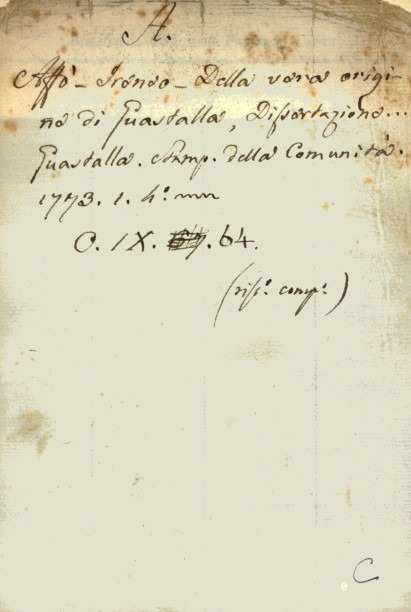 A.
Affò - Ireneo - Della vera origi-
ne di Guastalla, Dissertazione...
Guastalla. Stamp. della Comunità.
1773. 1. 4º.
O. IX. 64.
(risº. compº.)
C